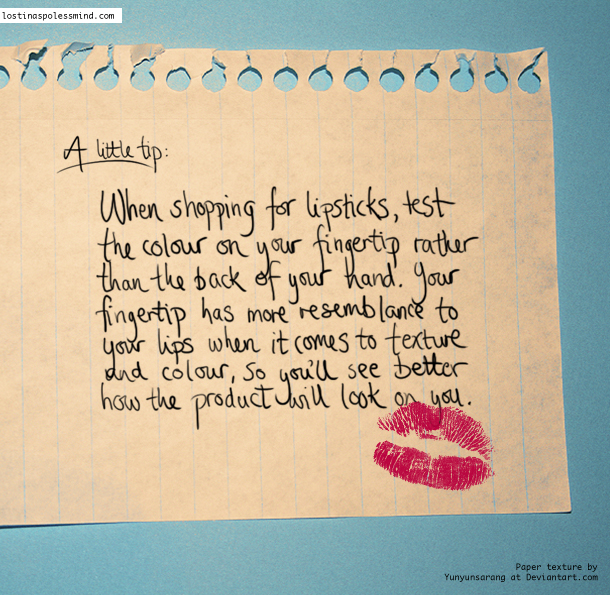 lostinaspolessmind.com
A little tip:
When shopping for lipsticks, test
the colour on your fingertip rather
than the back of your hand. Your
fingertip has more resemblance to
your lips when it comes to texture
and colour, so you'll see better
how the product will look on you.
Paper texture by
Yunyunsarang at Deviantart.com